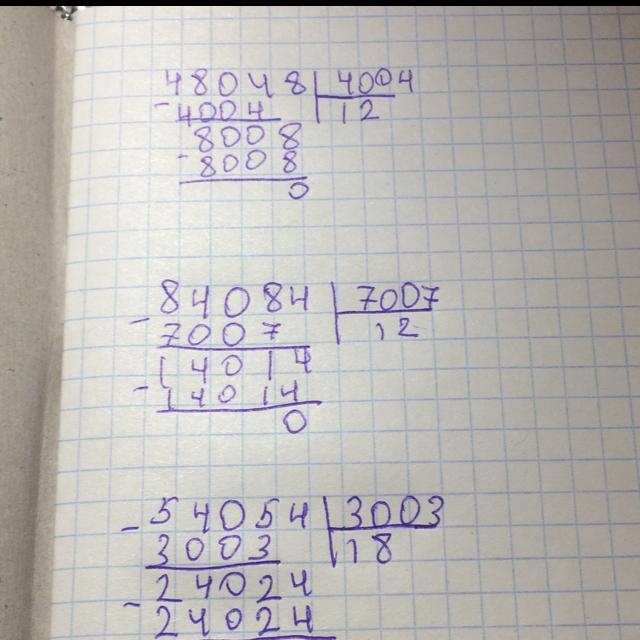 48048 | 4004
- 4004 | 12
8008
- 8008
0
84084 | 7007
- 7007 | 12
14014
- 14014
0
- 54054 | 3003
3003 | 18
- 24024
24024